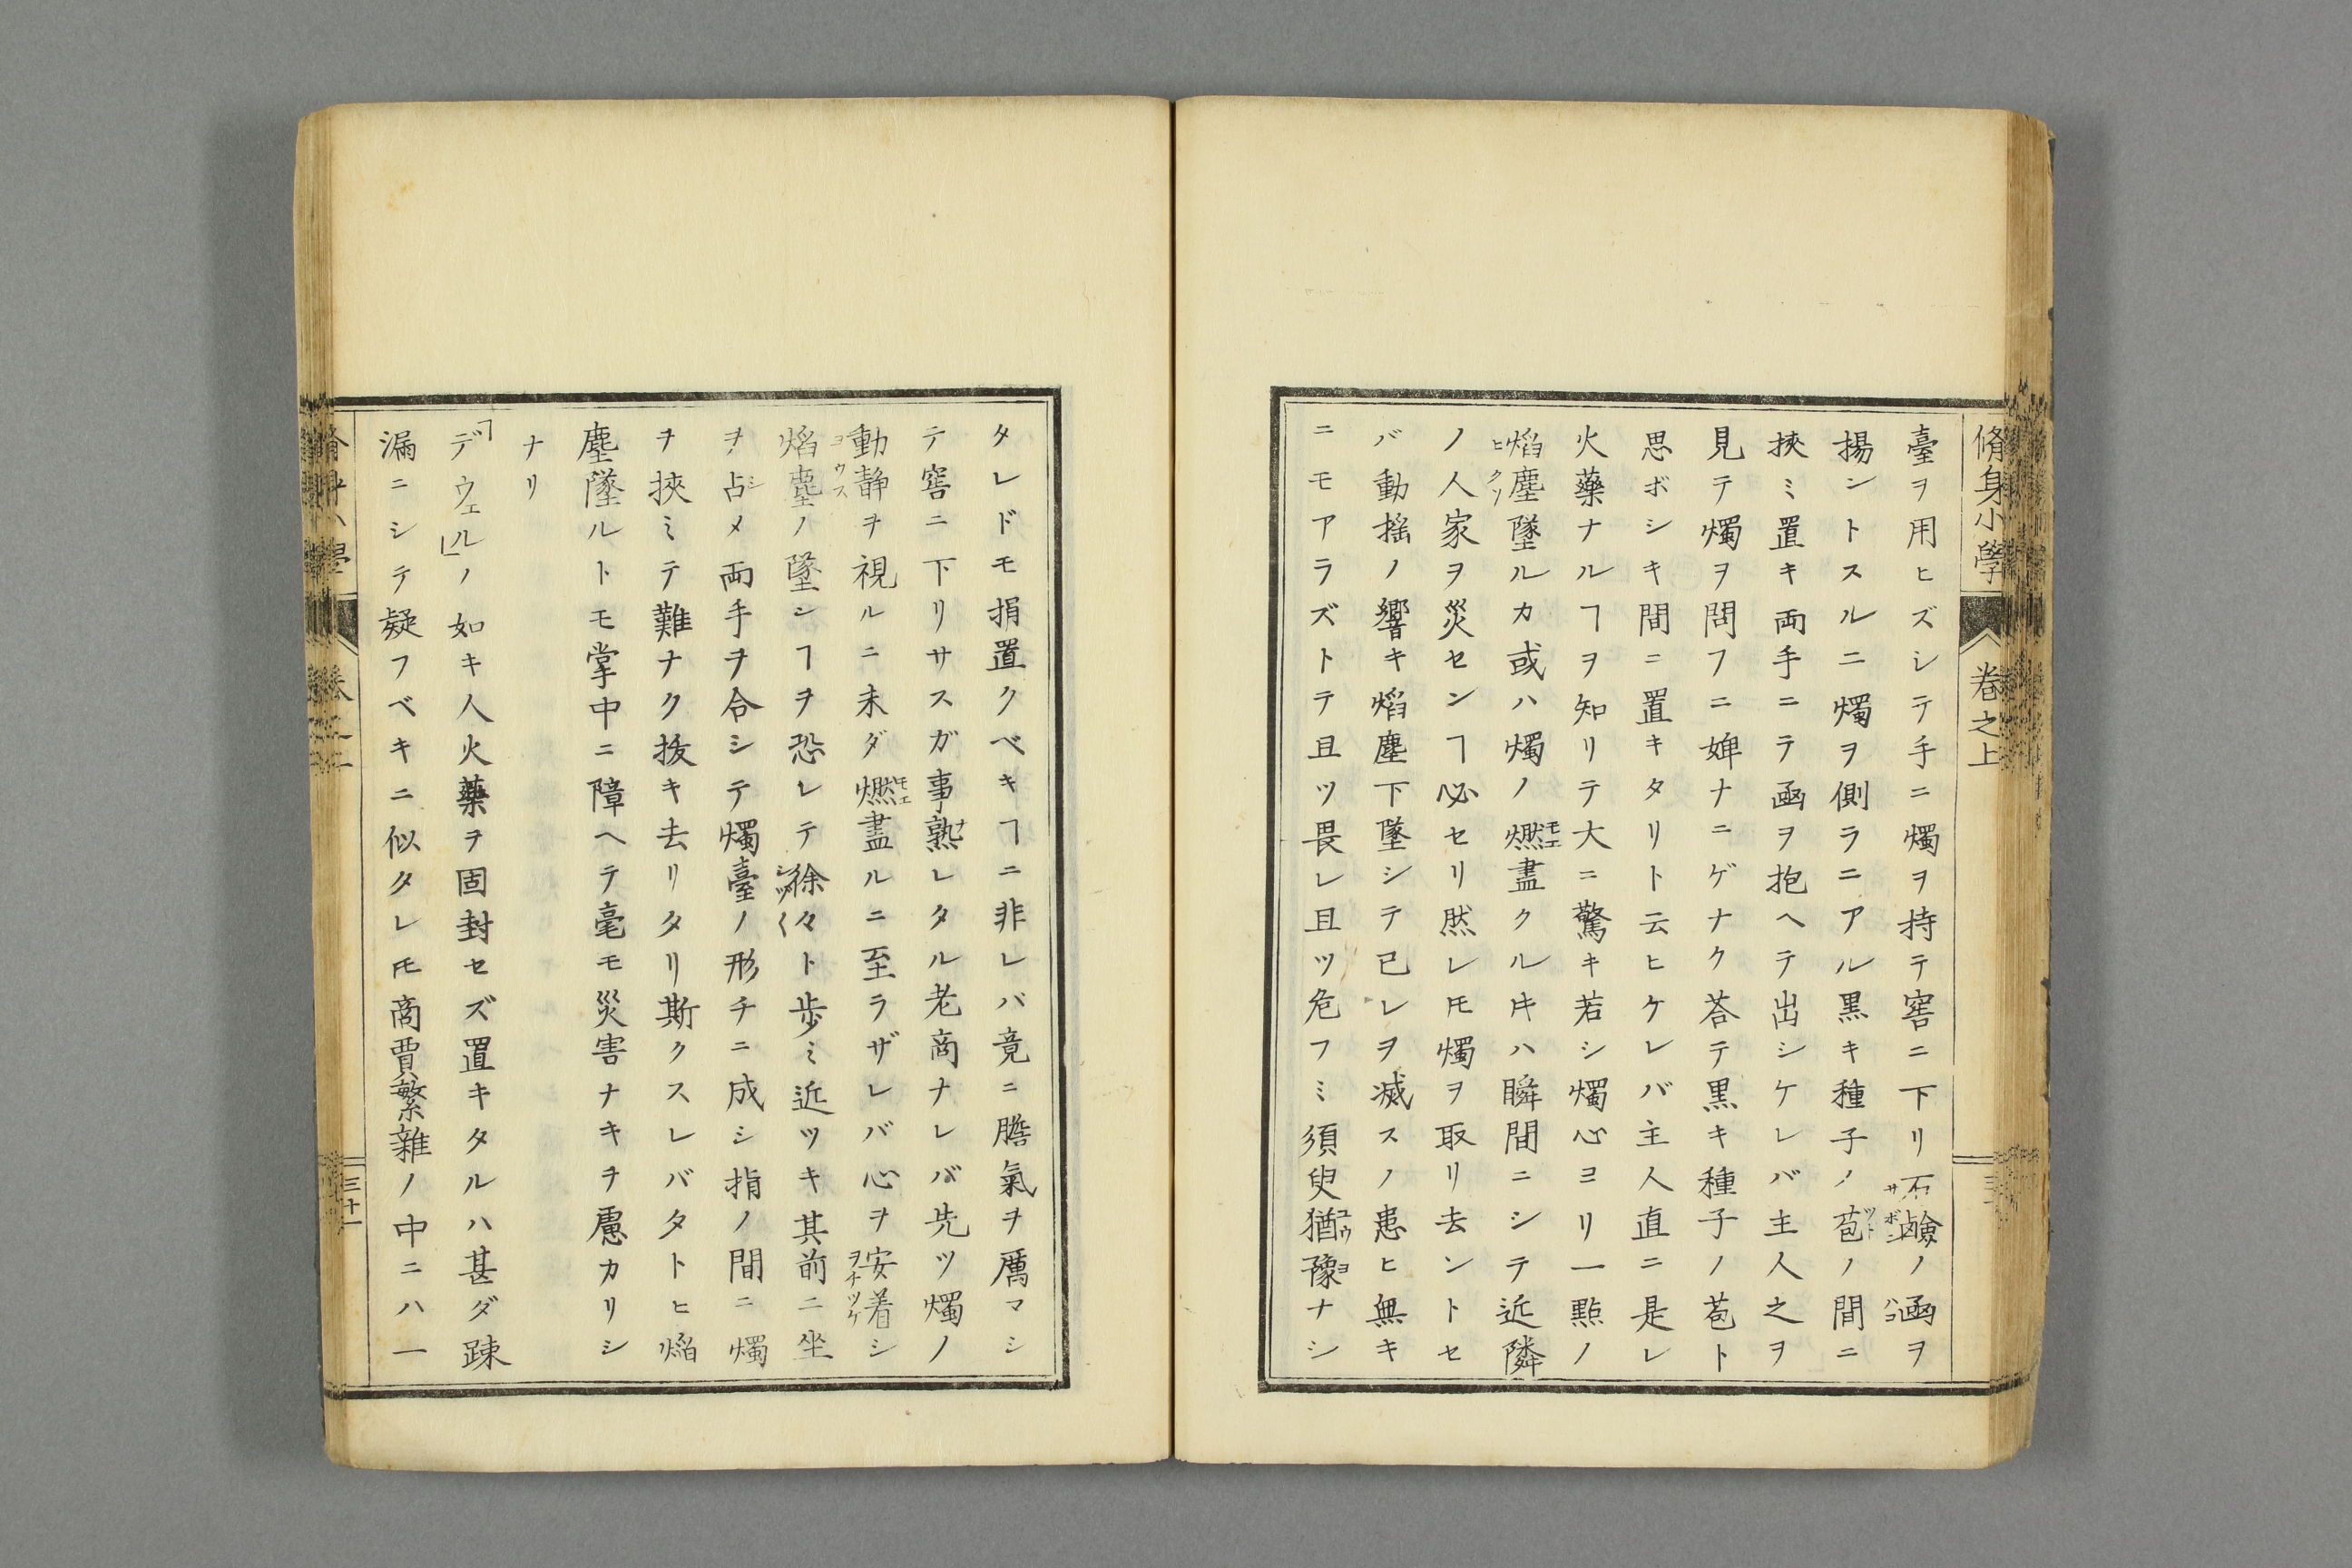 脩身小學 卷之上
臺ヲ用ヒズシテ手ニ燭ヲ持テ窖ニ下リ石鹼ノ函ヲ
揚ントスルニ燭ヲ側ラニアル黒キ種子ノ苞ノ間ニ
挾ミ置キ両手ニテ函ヲ抱ヘテ出シケレバ主人之ヲ
見テ燭ヲ問フニ婢ナニゲナク荅テ黒キ種子ノ苞ト
思ボシキ間ニ置キタリト云ヒケレバ主人直ニ是レ
火藥ナルヿヲ知リテ大ニ驚キ若シ燭心ヨリ一點ノ
焰塵墜ルカ或ハ燭ノ燃盡クル𪜈ハ瞬間ニシテ近隣
ノ人家ヲ災センヿ必セリ然レ𪜈燭ヲ取リ去ントセ
バ動揺ノ響キ焰塵下墜シテ已レヲ滅スノ患ヒ無キ
ニモアラズトテ且ツ畏レ且ツ危フミ須臾猶豫ナシ
タレドモ捐置クベキヿニ非レバ竟ニ膽氣ヲ厲マシ
テ窖ニ下リサスガ事熟レタル老商ナレバ先ツ燭ノ
動静ヲ視ルニ未ダ燃盡ルニ至ラザレバ心ヲ安着シ
焰塵ノ墜シヿヲ恐レテ徐々ト歩ミ近ツキ其前ニ坐
ヲ占メ両手ヲ合シテ燭臺ノ形チニ成シ指ノ間ニ燭
ヲ挾ミテ難ナク拔キ去リタリ斯クスレバタトヒ焰
塵墜ルトモ掌中ニ障ヘテ毫モ災害ナキヲ慮カリシ
ナリ
「デウェル」ノ如キ人火藥ヲ固封セズ置キタルハ甚ダ踈
漏ニシテ疑フベキニ似タレ𪜈商賈繁雜ノ中ニハ一
三十一